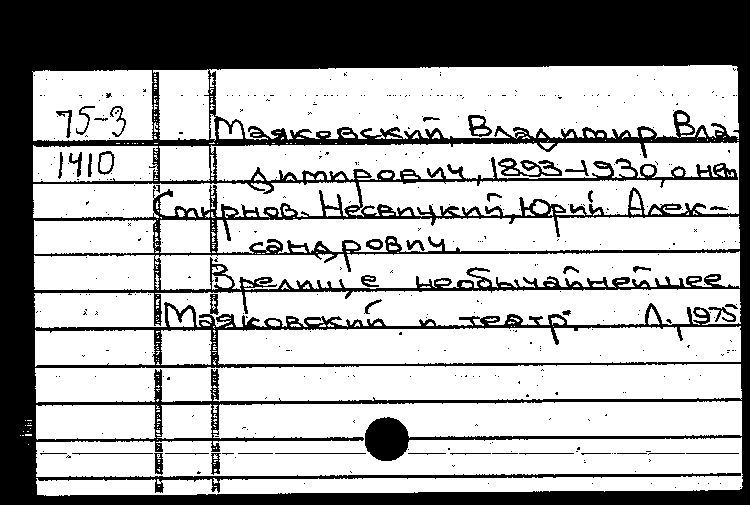 75-3 Маяковский, Владимир Вла-
1410 димирович, 1893-1930, о нем
Смирнов-Несвицкий, Юрий Алек-
сандрович.
Зрелище необычайнейшее.
Маяковский и театр. Л., 1975